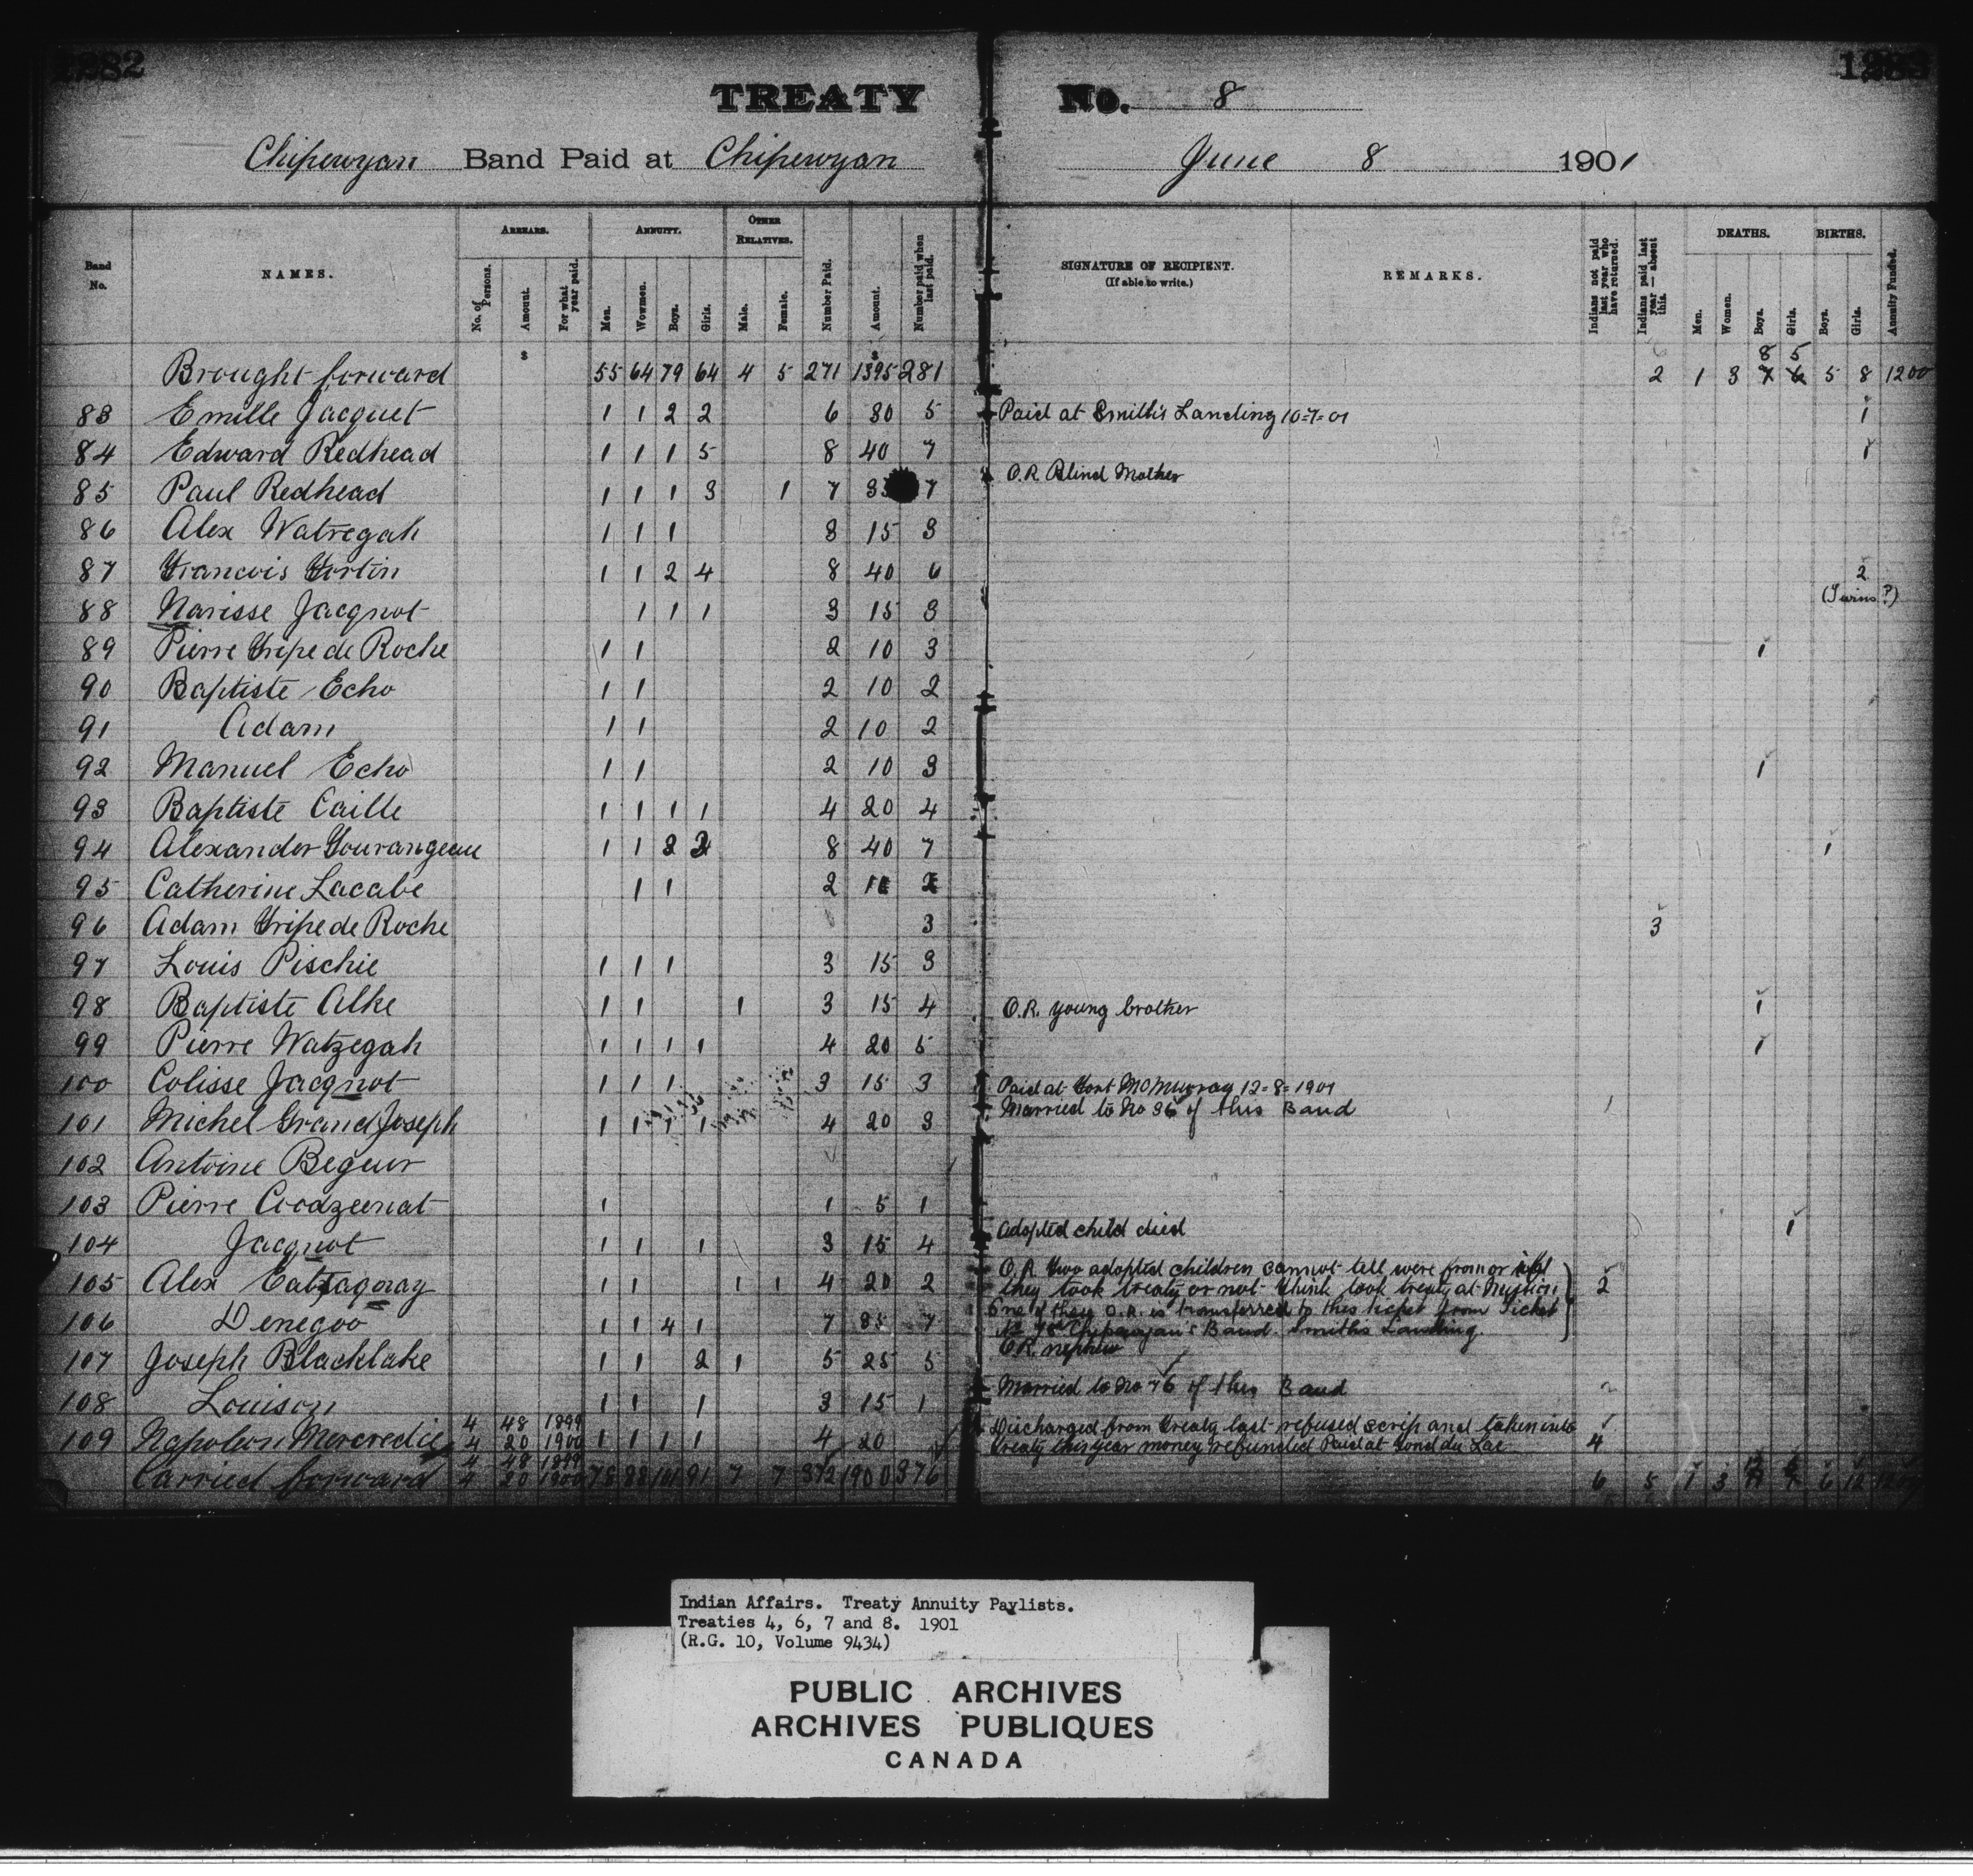 1282
TREATY No. 8
Chipewyan Band Paid at Chipewyan June 8 1901
Band No.
NAMES.
ARREARS.
No. of Persons.
Amount.
For what year paid.
ANNUITY.
Men.
Wowmen.
Boys.
Girls.
OTHER RELATIVES.
Male.
Female.
Number Paid.
Amount.
Number paid when last paid.
SIGNATURE OF RECIPIENT.
(If able to write.)
REMARKS.
Indians not paid last year who have returned.
Indians paid last year — absent this.
DEATHS.
Men.
Women.
Boys.
Girls.
BIRTHS.
Boys.
Girls.
Annuity Funded.
$ $
8 5
Brought forward 55 64 79 64 4 5 271 1395 281 2 1 3 7 6 5 8 1200
83 Emille Jacquet 1 1 2 2 6 30 5 Paid at Smith's Landing 10-7-01 1
84 Edward Redhead 1 1 1 5 8 40 7 1
85 Paul Redhead 1 1 1 3 1 7 7 O.R. Blind Mother
86 Alex Watregah 1 1 1 3 15 3
87 Francois Fortin 1 1 2 4 8 40 6 2 (Twins?)
88 Narisse Jacqnot 1 1 1 3 15 3
89 Pierre Tripe de Roche 1 1 2 10 3 1
90 Baptiste Echo 1 1 2 10 2
91 Adam 1 1 2 10 2
92 Manuel Echo 1 1 2 10 3 1
93 Baptiste Caille 1 1 1 1 4 20 4
94 Alexander Tourangeau 1 1 8 40 7 1
95 Catherine Lacabe 1 1 2 2
96 Adam Tripe de Roche 3 3
97 Louis Pischie 1 1 1 3 15 3
98 Baptiste Alke 1 1 1 3 15 4 O.R. young brother 1
99 Pierre Watzegah 1 1 1 1 4 20 5 1
100 Colisse Jacqnot 1 1 1 3 15 3 Paid at Fort McMurray 12-8-1901
101 Michel Grand Joseph 1 1 1 1 4 20 3 Married to No 36 of this Band
102 Antoine Begeur
103 Pierre Coodzeenat 1 1 5 1
104 Jacqnot 1 1 1 3 15 4 Adopted child died 1
105 Alex Eatsaqoray 1 1 1 1 4 20 2 O.R. two adopted children cannot tell were from or if
they took treaty or not think took treaty at Mission 2
One of these O.R. is transferred to this ticket from Ticket
106 Denegoo 1 1 4 1 7 35 7 Chipewyan's Band. Smith's Landing.
107 Joseph Blacklake 1 1 2 1 5 25 5 O.R. nephew
108 Louison 1 1 1 3 15 1 Married to No 76 of this Band
4 48 1899 Discharged from Treaty last refused scrip and taken into
109 Napoleon Mercredie 4 20 1900 1 1 1 1 4 20 treaty this year money refunded Paid at Fond du Lac 4
4 48 1899
Carried forward 4 20 1900 78 88 101 91 7 7 372 1900 376 6 5 1 3 6 12
Indian Affairs. Treaty Annuity Paylists.
Treaties 4, 6, 7 and 8. 1901
(R.G. 10, Volume 9434)
PUBLIC ARCHIVES
ARCHIVES PUBLIQUES
CANADA